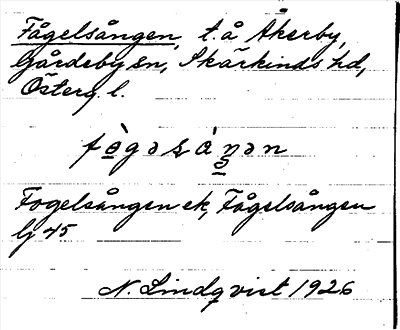 Fågelsången, t. å Åkerby,
Gårdeby sn, Skärkinds hd,
Österg. l.
Fogelsången ek, Fågelsången
lj 45
N. Lindqvist 1926